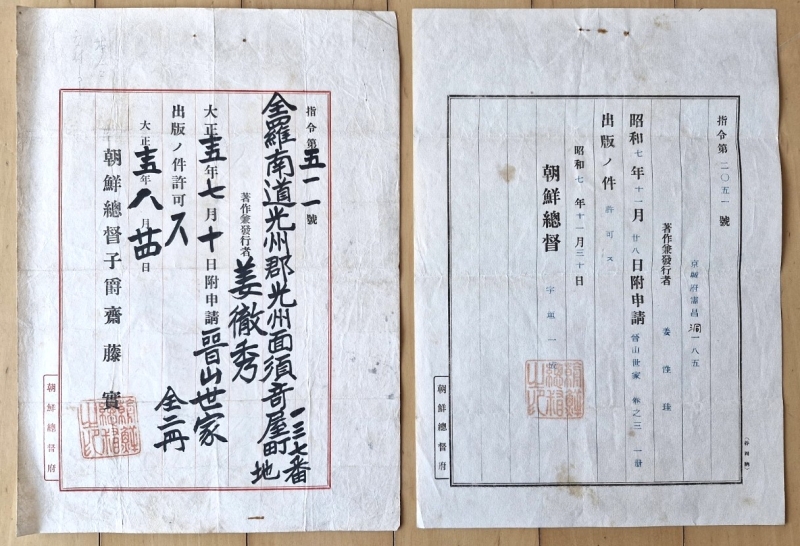 指令第五一一號
全羅南道光州郡光州面須奇屋町
一三七番地
著作兼發行者
姜徹秀
大正十五年七月十日附申請晉山世家
全二冊
出版ノ件許可ス
大正十五年八月廿四日
朝鮮總督子爵齋藤實
朝鮮總督府
指令第二〇五一號
京城府壽昌洞一八五
著作兼發行者
姜
昭和七年十一月廿八日附申請晉山世家卷之三一册
出版ノ件許可ス
昭和七年十一月三十日
朝鮮總督宇垣一成
朝鮮總督府